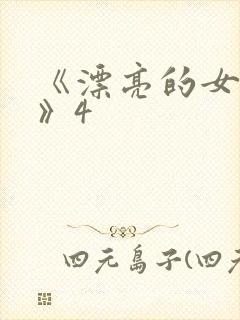 《漂亮的女
》4
四元岛子(四元